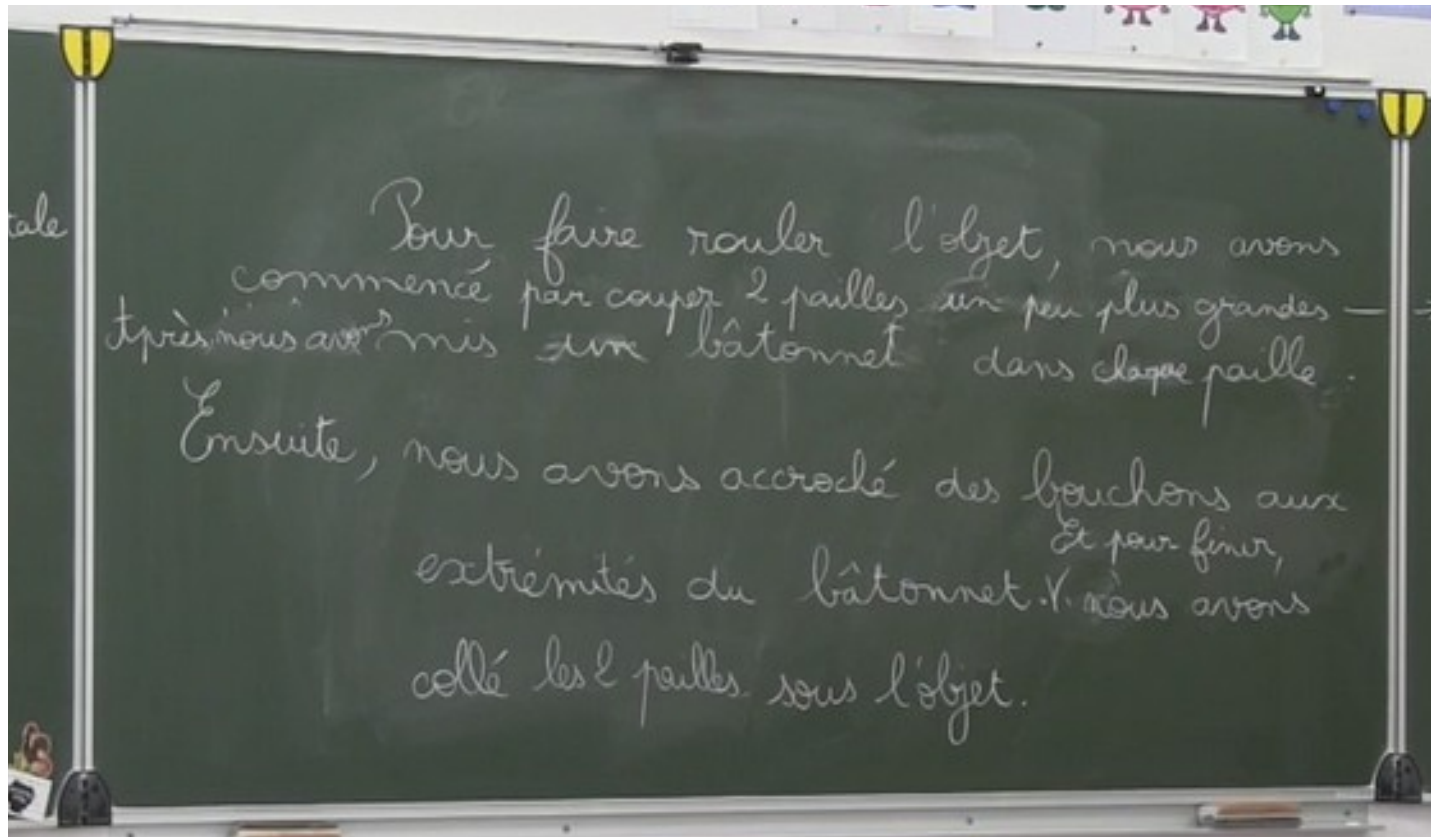 tale
Pour faire rouler l'objet, nous avons
commencé par couper 2 pailles un peu plus grandes →
Après, nous avons mis un bâtonnet dans chaque paille.
Ensuite, nous avons accroché des bouchons aux
Et pour finir,
extrémités du bâtonnet. V. nous avons
collé les 2 pailles sous l'objet.